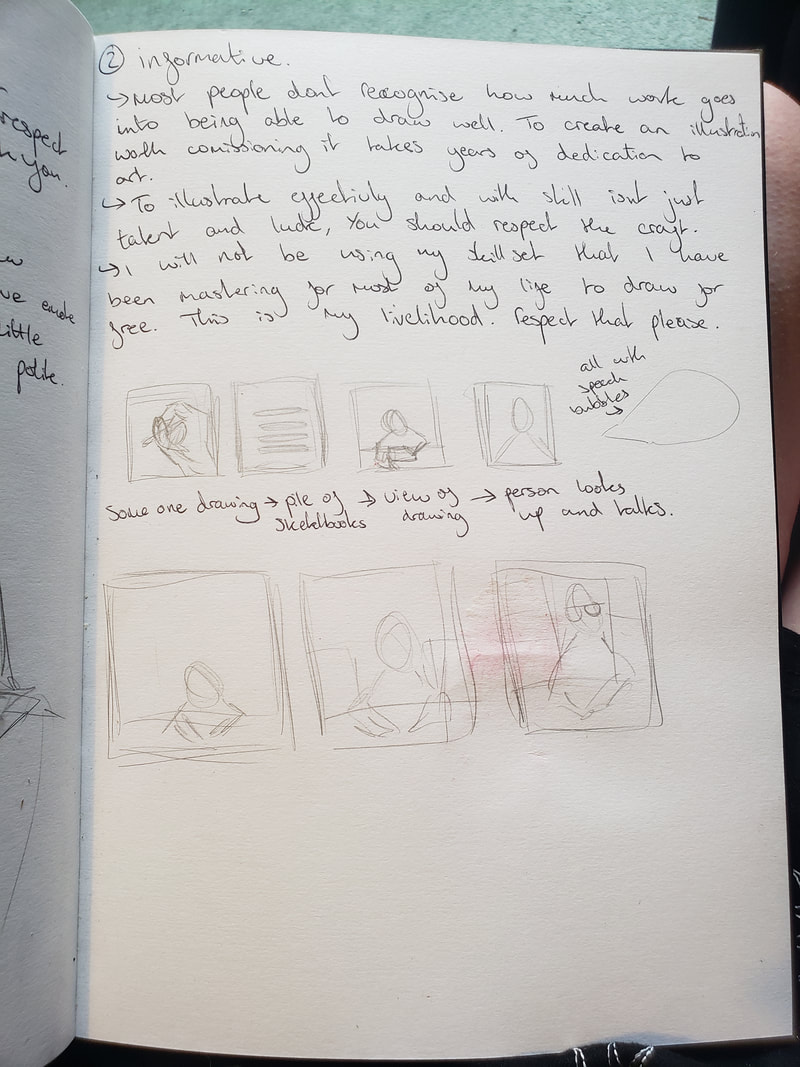 respect
you.
ve emote
little
polite.
② informative.
→ Most people dont recognise how much work goes
into being able to draw well. To create an illustration
worth comissioning it takes years of dedication to
art.
→ To illustrate effectivly and with skill isnt just
talent and luck, You should respect the craft.
→ I will not be using my skillset that I have
been mastering for most of my life to draw for
free. This is my livelihood. respect that please.
all with
speech
bubbles
Some one drawing → pile of → view of → person looks
sketchbooks drawing up and talks.